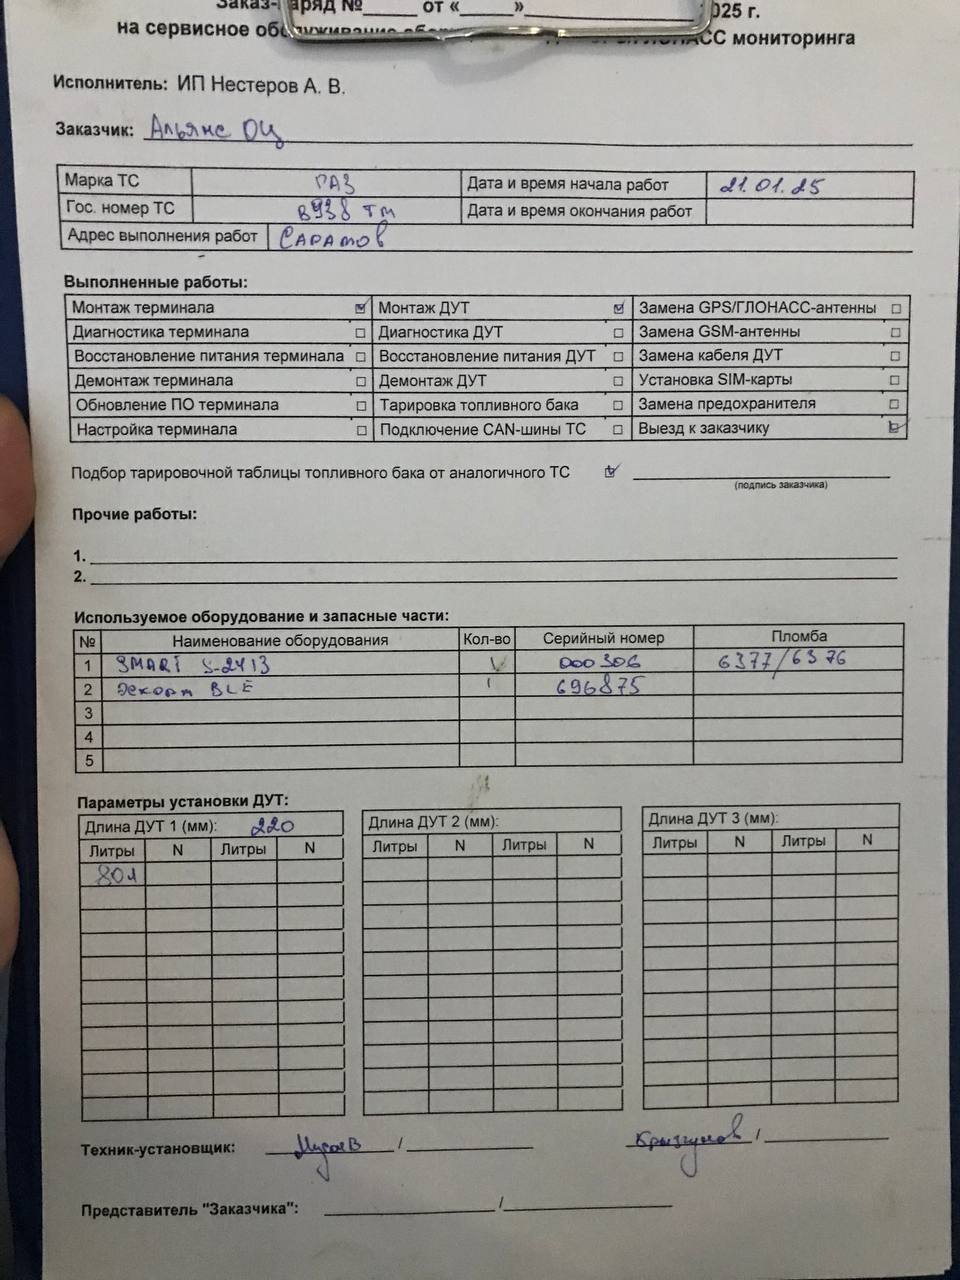 Заказ-наряд №_____ от «____»________ 2025 г.
на сервисное обслуживание ГЛОНАСС мониторинга
Исполнитель: ИП Нестеров А. В.
Заказчик: Альянс ОЦ
Марка ТС ГАЗ Дата и время начала работ 21.01.25
Гос. номер ТС В938 ТМ Дата и время окончания работ
Адрес выполнения работ Саратов
Выполненные работы:
Монтаж терминала ☑ Монтаж ДУТ ☑ Замена GPS/ГЛОНАСС-антенны ☐
Диагностика терминала ☐ Диагностика ДУТ ☐ Замена GSM-антенны ☐
Восстановление питания терминала ☐ Восстановление питания ДУТ ☐ Замена кабеля ДУТ ☐
Демонтаж терминала ☐ Демонтаж ДУТ ☐ Установка SIM-карты ☐
Обновление ПО терминала ☐ Тарировка топливного бака ☐ Замена предохранителя ☐
Настройка терминала ☐ Подключение CAN-шины ТС ☐ Выезд к заказчику ☑
Подбор тарировочной таблицы топливного бака от аналогичного ТС ☑
(подпись заказчика)
Прочие работы:
1.
2.
Используемое оборудование и запасные части:
№ Наименование оборудования Кол-во Серийный номер Пломба
1 SMART S-2413 1 000306 6377/6376
2 Эскорт BLE 1 696875
3
4
5
Параметры установки ДУТ:
Длина ДУТ 1 (мм): 220 Длина ДУТ 2 (мм): Длина ДУТ 3 (мм):
Литры N Литры N Литры N Литры N Литры N Литры N
80л
Техник-установщик: Мусаев / Крызгунов /
Представитель "Заказчика": /